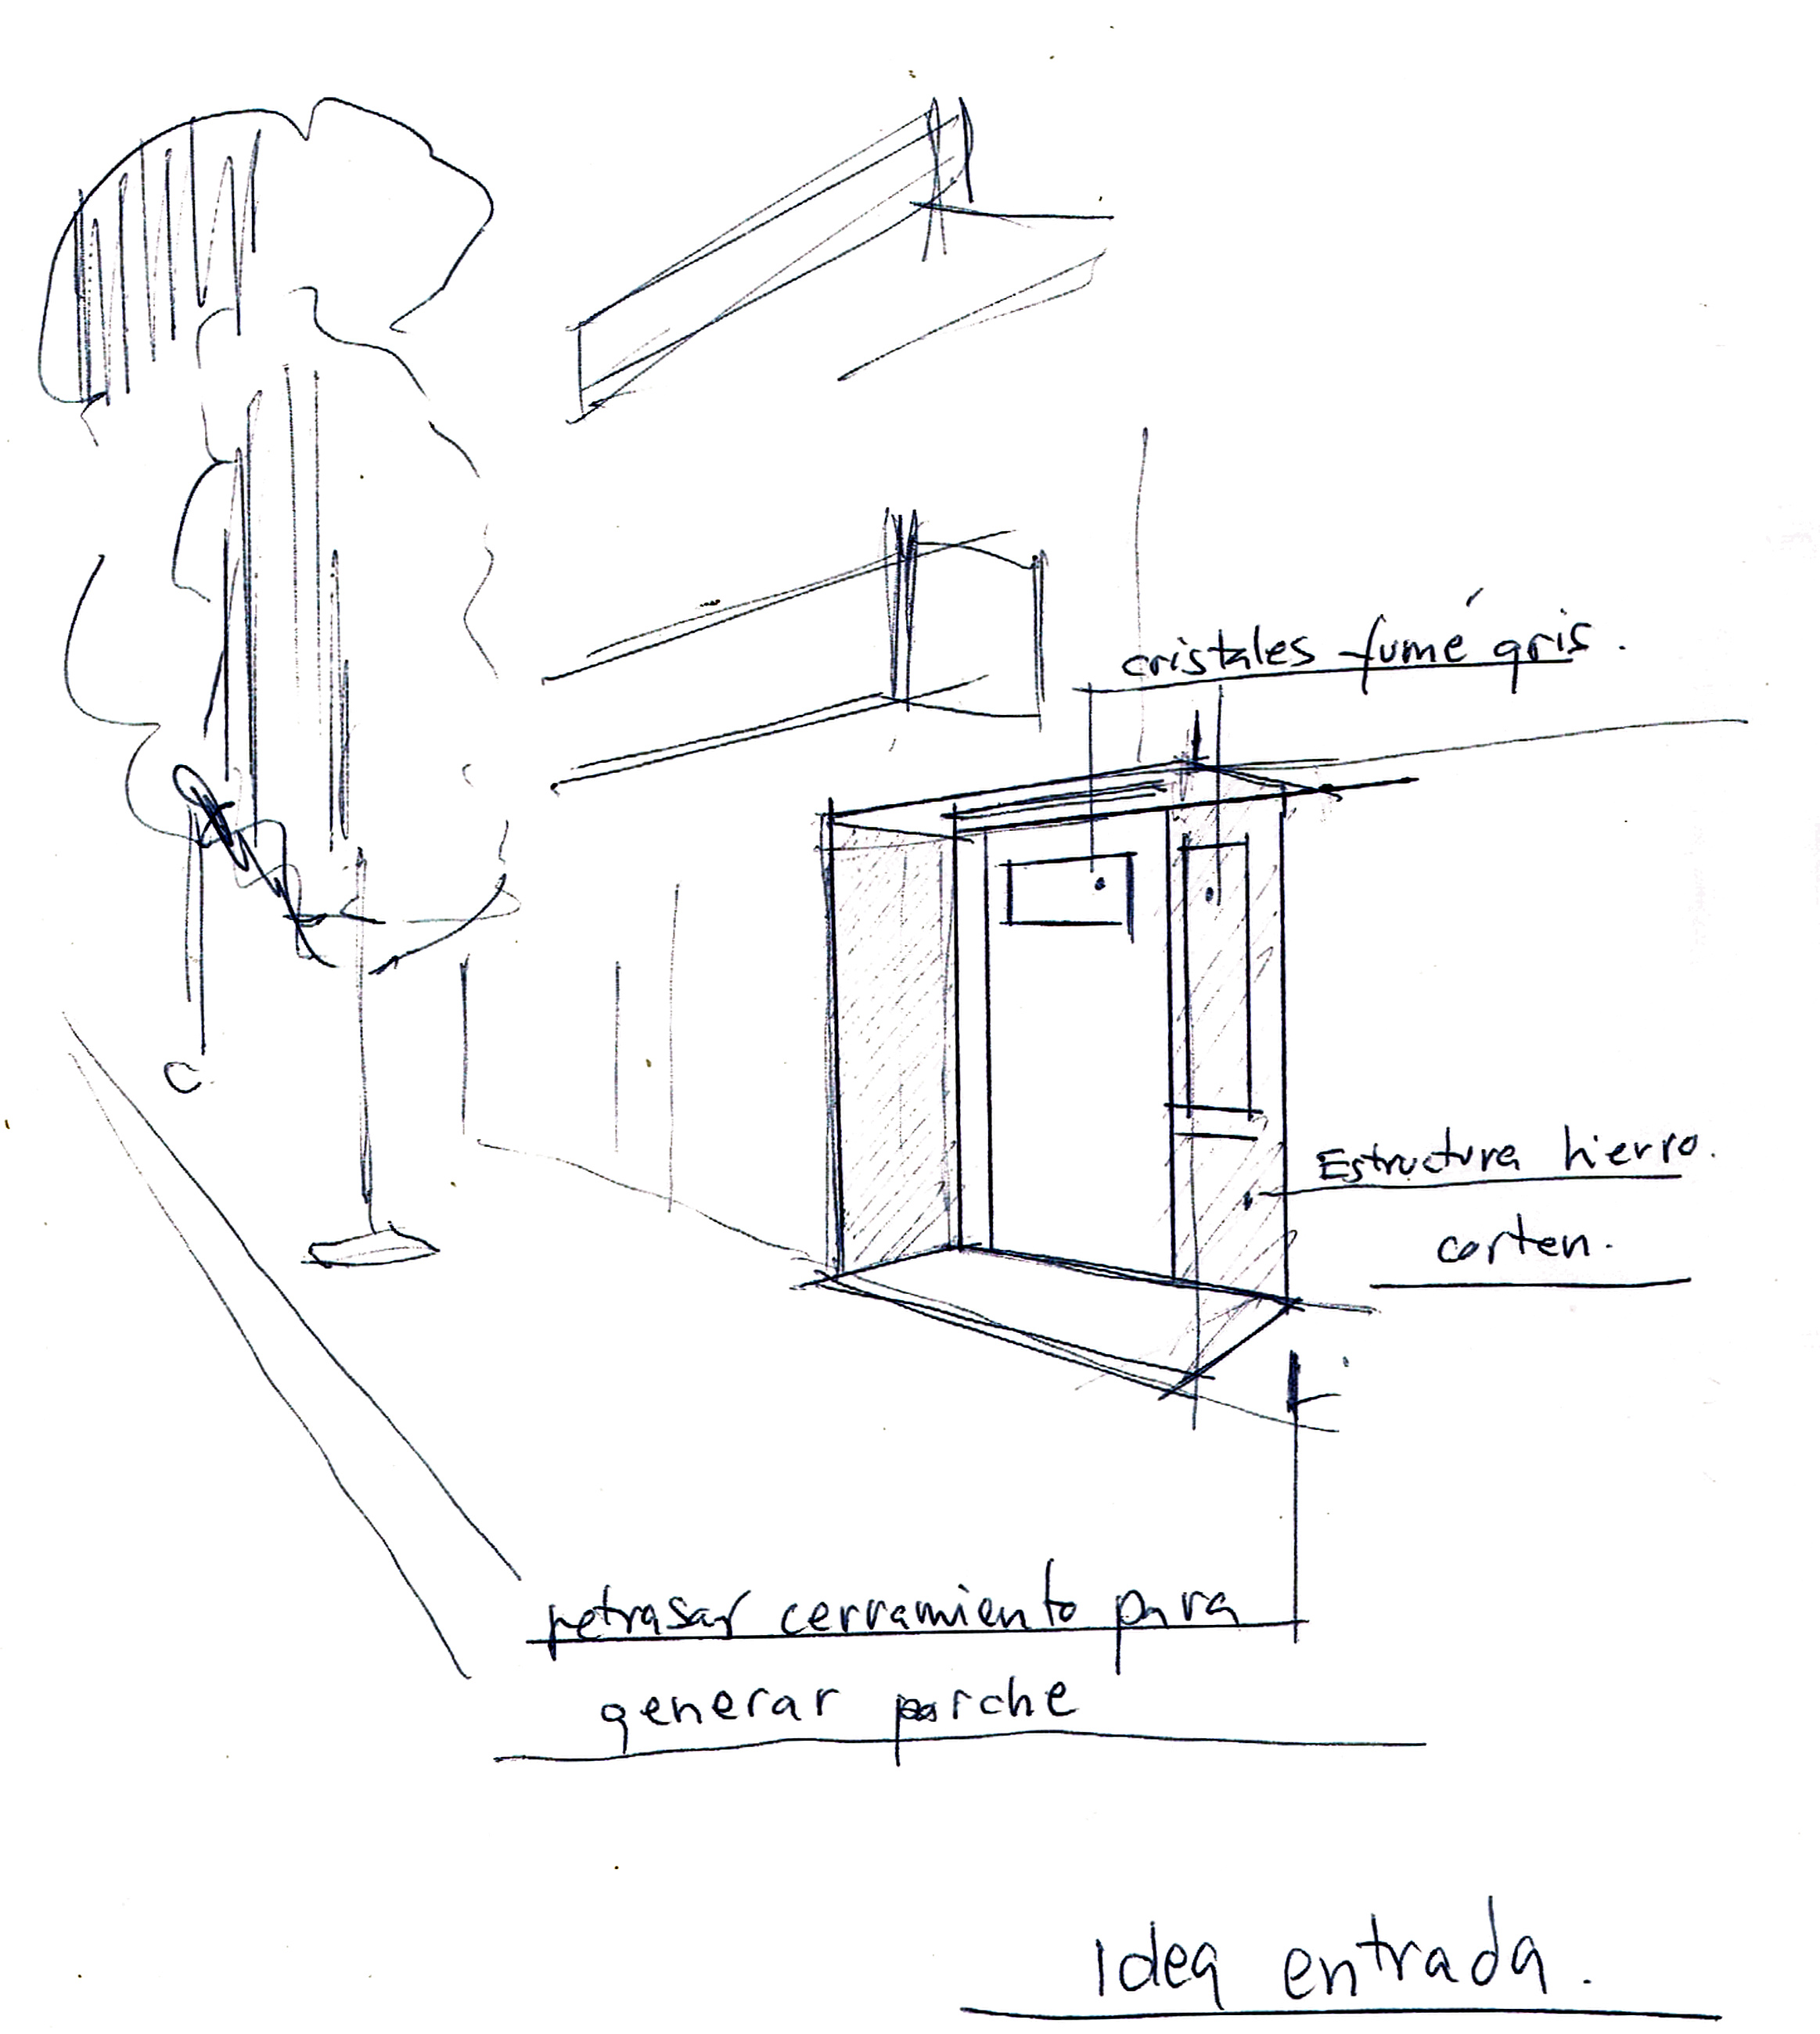 cristales fumé gris.
Estructura hierro.
corten.
retrasar cerramiento para
generar porche
Idea entrada.